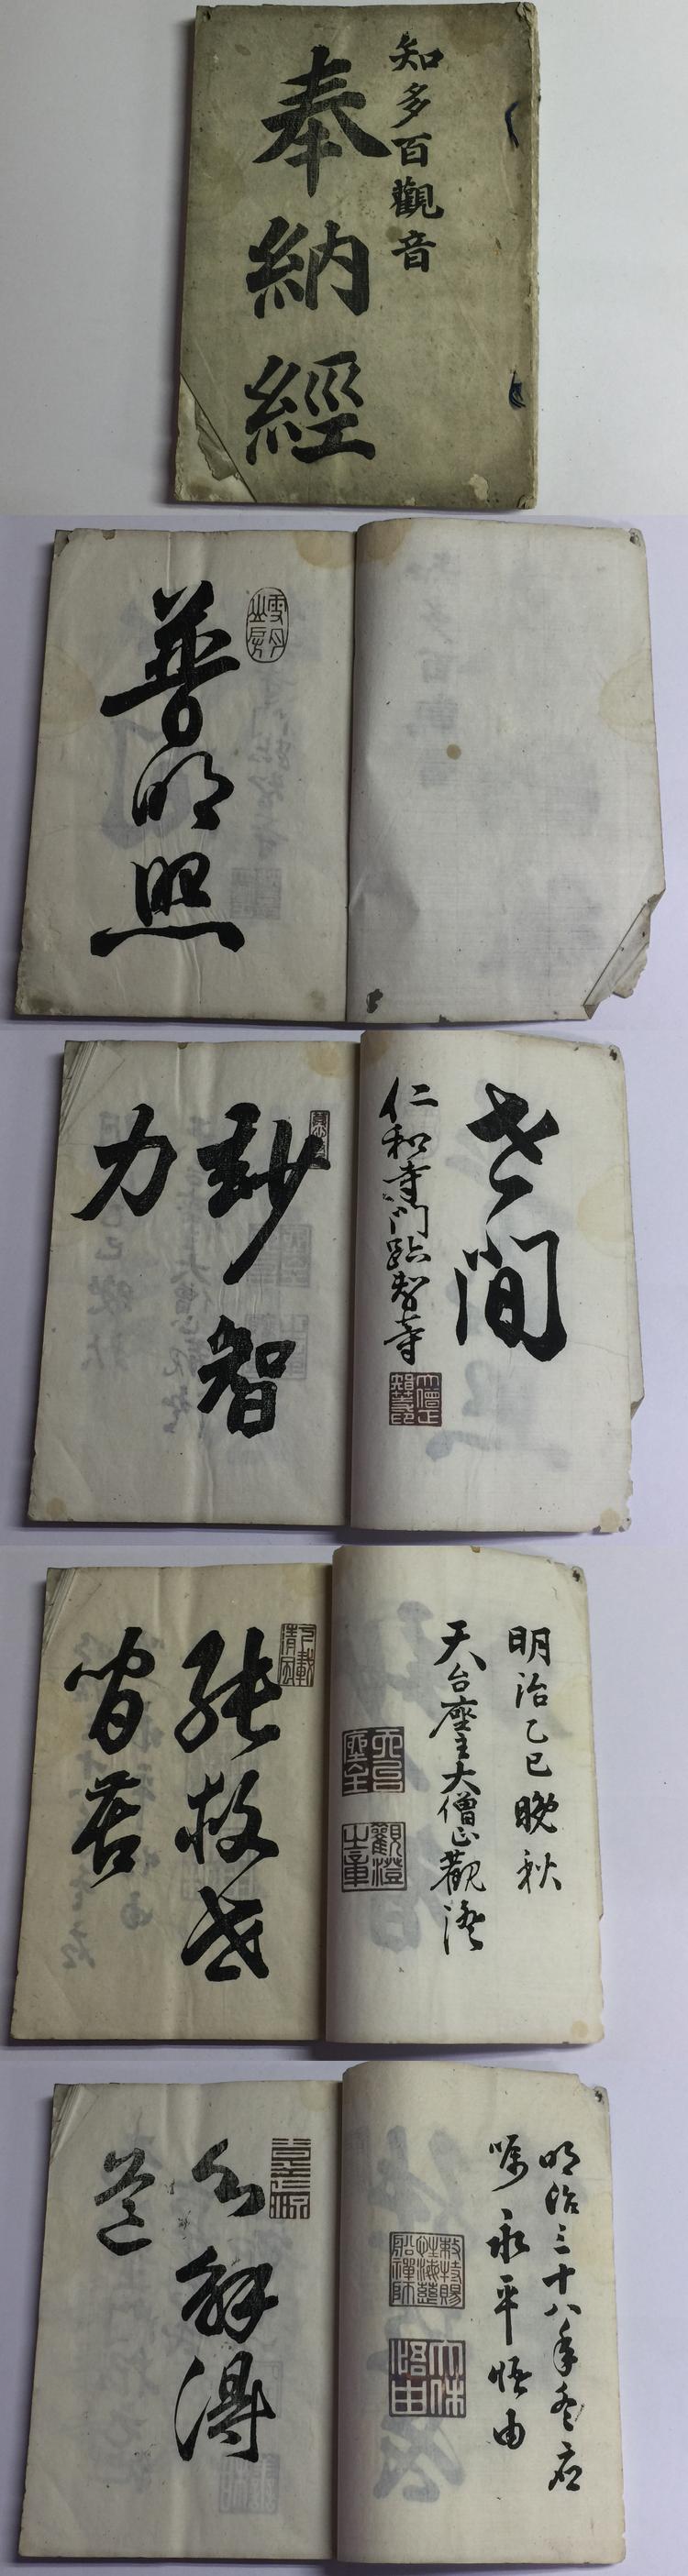 知多百觀音
奉納經
普明照
世間
仁和寺門跡智等
妙智
力
明治乙巳晚秋
天台座主大僧正觀澄
能救世
間苦
明治三十八年冬應
嘱永平悟由
心解得
道